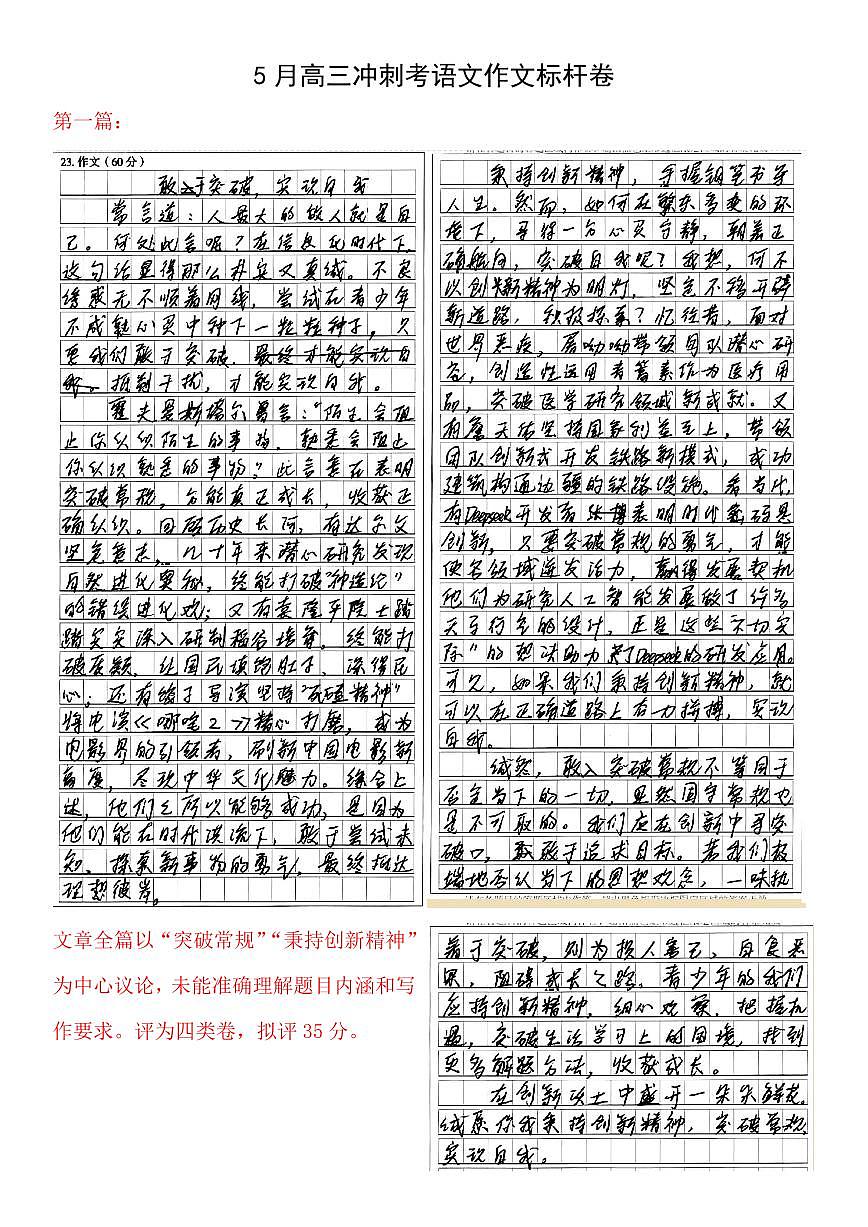 5月高三冲刺考语文作文标杆卷
第一篇:
23.作文(60分)
敢于突破，实现自我
常言道：人最大的敌人就是自
己。何处此言呢？在信息化时代下，
这句话显得那么朴实又真诚。不良
诱惑无不顺着网线，尝试在青少年
不成熟心灵中种下一粒粒种子，只
要我们敢于突破，
抵制干扰，才能实现自我。
霍夫曼斯塔尔曾言：“陌生会阻
止你认识陌生的事物，熟悉会阻止
你认识熟悉的事物？此言意在表明
突破常规，方能真正成长，收获正
确认识。回顾历史长河，有达尔文
坚定意志，几十年来潜心研究发现
自然进化奥秘，终能打破“神造论”
的错误进化观；又有袁隆平院士踏
踏实实深入研制稻谷培育，终能打
破质疑，让国民填饱肚子，深得民
心；还有饺子导演坚持“死磕精神”
将电演《哪吒2》精心打磨，成为
电影界的引领者，刷新中国电影新
高度，尽现中华文化魅力。综合上
述，他们之所以能够成功，是因为
他们能在时代洪流下，敢于尝试未
知、探索新事物的勇气，最终抵达
理想彼岸。
秉持创新精神，手握钢笔书写
人生。然而，如何在繁杂多变的环
境下，寻得一方心灵宁静，朝着正
确航向，突破自我呢？我想，何不
以创新精神为明灯，坚定不移开辟
新道路，积极探寻？忆往昔，面对
世界恶疾，屠呦呦带领团队潜心研
究，创造性运用青蒿素作为医疗用
品，突破医学研究领域新成就。又
有詹天佑坚持国家利益至上，带领
团队创新式开发铁路新模式，成功
建筑沟通边疆的铁路设施。看当代，
有Deepseek开发者
创新，只要突破常规的勇气，才能
使各领域迸发活力，赢得发展契机
他们为研究人工智能发展做了许多
天马行空的设计，正是这些“不切实
际”的想法助力了Deepseek的研发应用。
可见，如果我们秉持创新精神，就
可以在正确道路上奋力拼搏，实现
自我。
诚然，敢入突破常规不等同于
否定当下的一切，显然固守常规也
是不可取的。我们应在创新中寻突
破口，敢于追求目标。若我们极
端地否认当下的思想观念，一味执
着于突破，则为损人害己，自食恶
果，阻碍成长之路。青少年的我们
应持创新精神，细心观察，把握机
遇，突破生活学习上的困境，找到
更多解题方法，收获成长。
在创新沃土中盛开一朵朵鲜花。
诚愿你我秉持创新精神，突破常规，
实现自我。
文章全篇以“突破常规”“秉持创新精神”
为中心议论，未能准确理解题目内涵和写
作要求。评为四类卷，拟评35分。